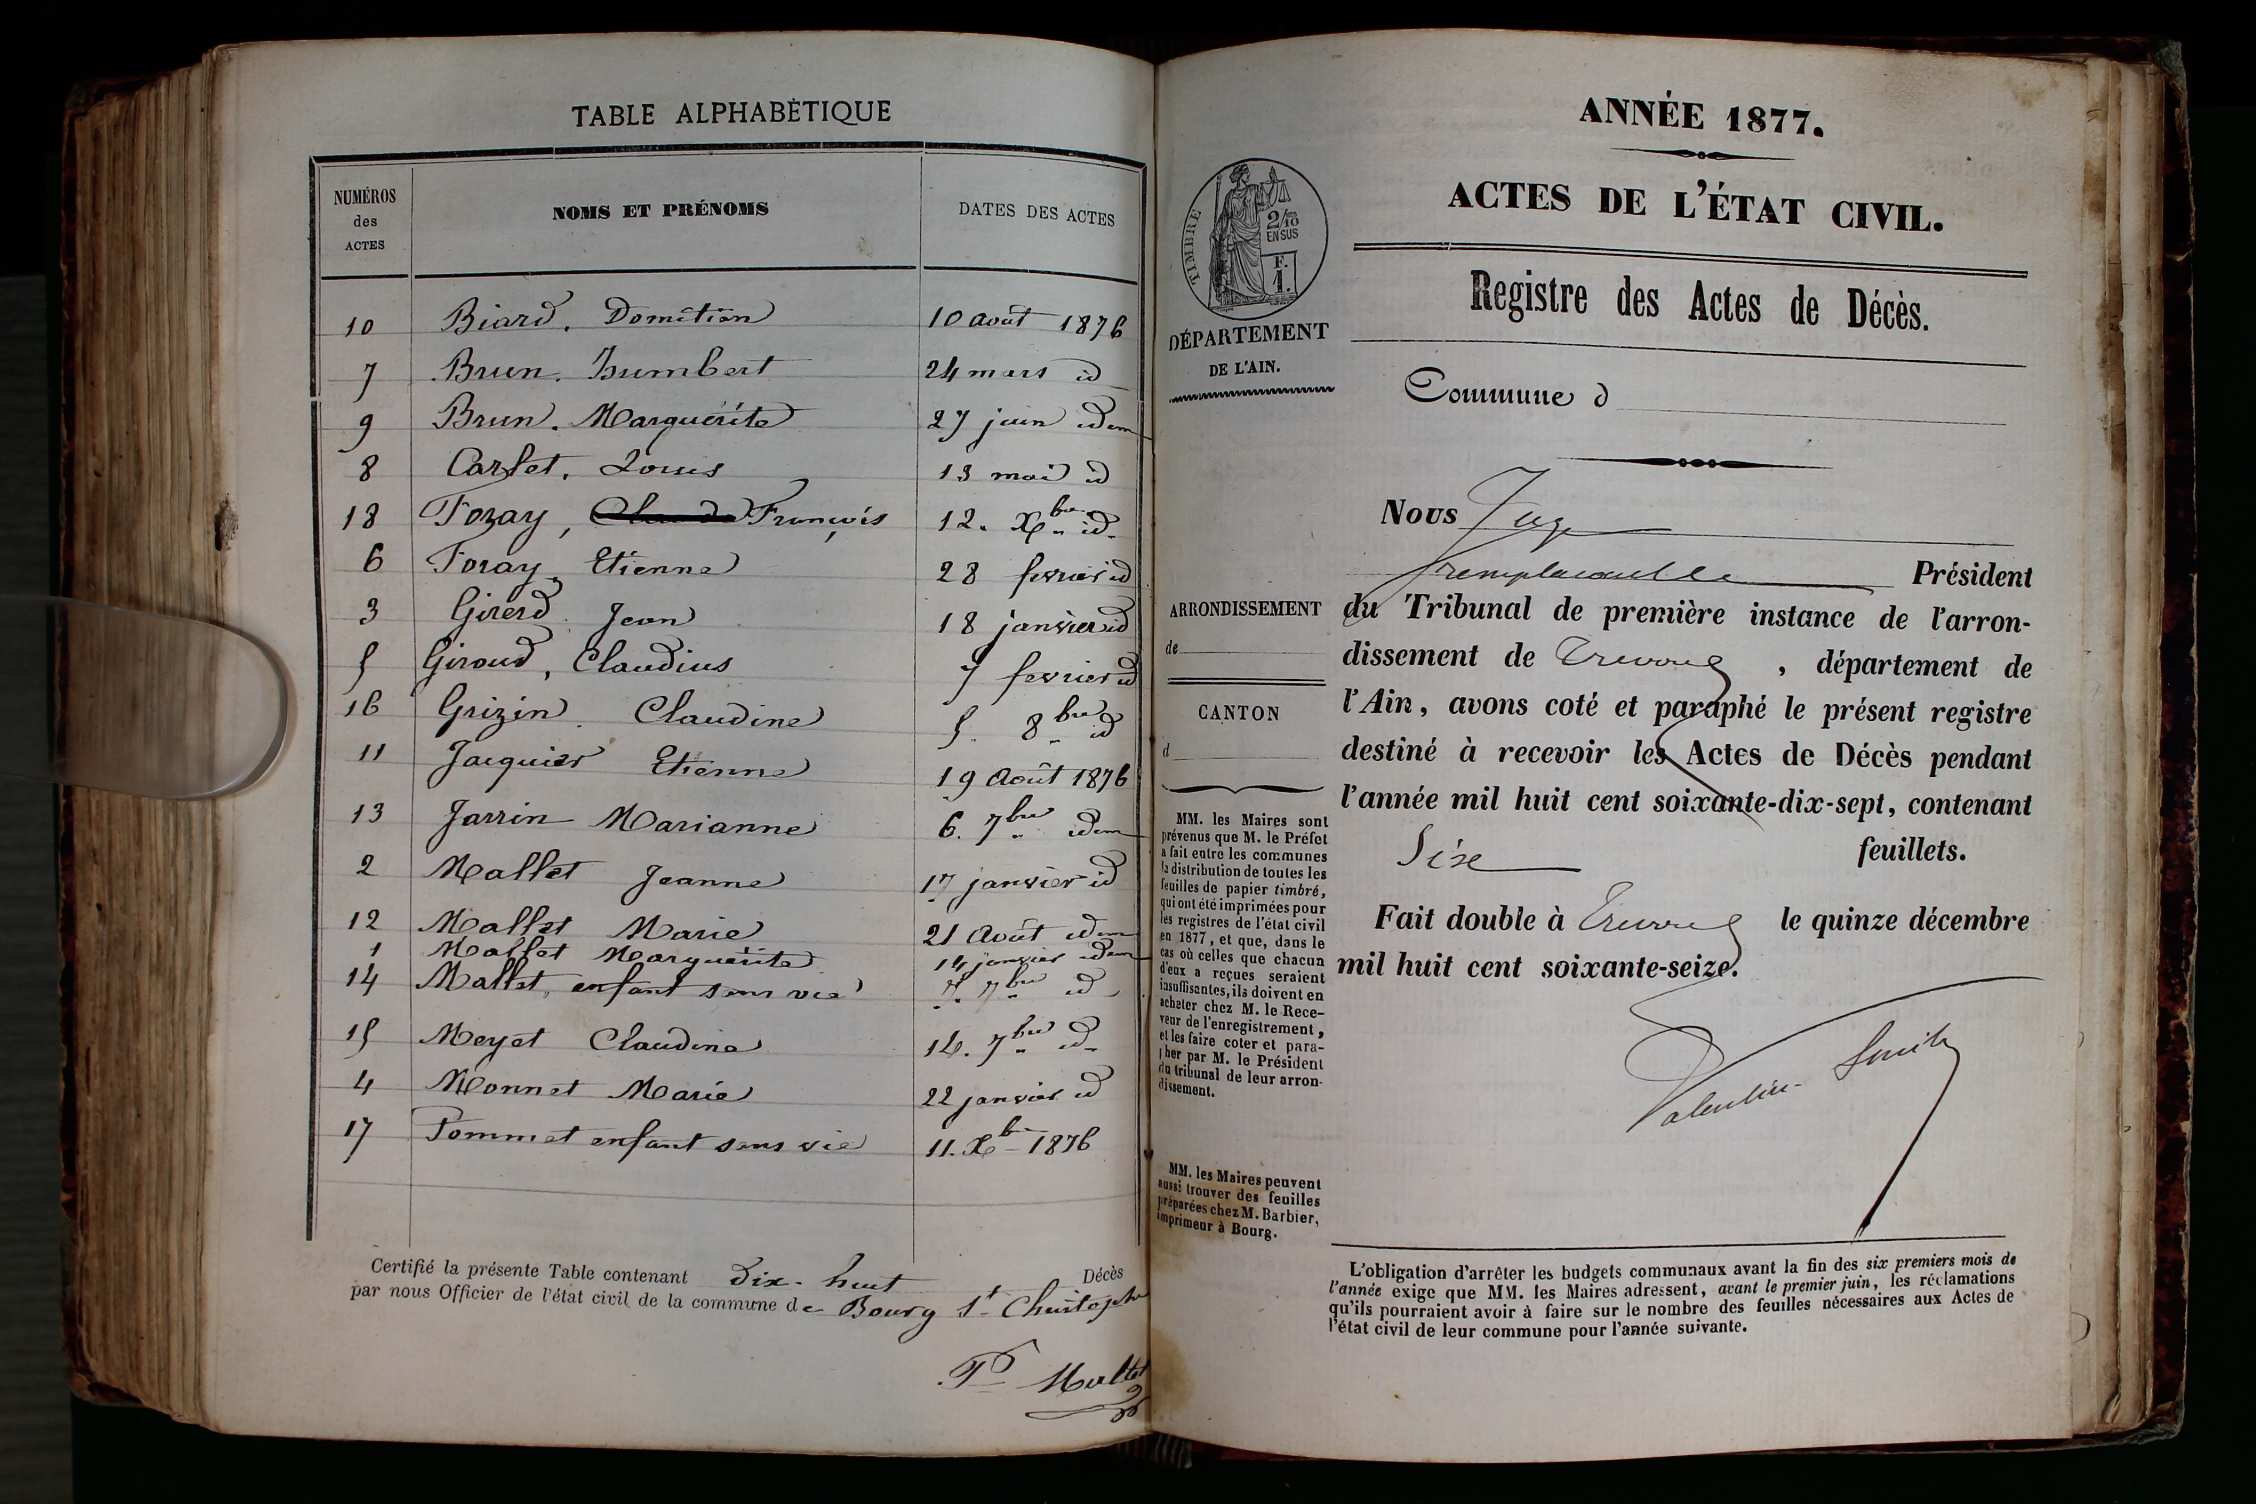 TABLE ALPHABÉTIQUE
NUMÉROS des ACTES
NOMS ET PRÉNOMS
DATES DES ACTES
10 Biard. Domitien 10 août 1876
7 Brun. Humbert 24 mars id
9 Brun. Marguérite 27 juin idem
8 Carlet. Louis 13 mai id
18 Foray, Claude François 12. Xbre id.
6 Foray Etienne 28 fevrier id
3 Girerd Jean 18 janvier id
5 Giroud, Claudius 7 fevrier id
16 Grizin Claudine 5. 8bre id
11 Jacquier Etienne 19 Août 1876
13 Jarrin Marianne 6. 7bre idem
2 Mallet Jeanne 17 janvier id
12 Mallet Marie 21 Août idem
1 Mallet Marguérite 14 janvier idem
14 Mallet, enfant sans vie 7. 7bre id
15 Meyet Claudine 14. 7bre id.
4 Monnet Marie 22 janvier id
17 Pommet enfant sans vie 11. Xbre 1876
Certifié la présente Table contenant dix-huit Décès
par nous Officier de l'état civil de la commune de Bourg St Christophe
Mallet
ANNÉE 1877.
ACTES DE L'ÉTAT CIVIL.
TIMBRE
2/10
EN SUS
F.
1.
DÉPARTEMENT
DE L'AIN.
Registre des Actes de Décès.
Commune d
Nous Juge
remplaçant le Président
ARRONDISSEMENT
de
CANTON
d
du Tribunal de première instance de l'arron-
dissement de Trevoux, département de
l'Ain, avons coté et paraphé le présent registre
destiné à recevoir les Actes de Décès pendant
l'année mil huit cent soixante-dix-sept, contenant
Six feuillets.
Fait double à Trevoux le quinze décembre
mil huit cent soixante-seize.
Valentin Smith
MM. les Maires sont
prévenus que M. le Préfet
a fait entre les communes
la distribution de toutes les
feuilles de papier timbré,
qui ont été imprimées pour
les registres de l'état civil
en 1877, et que, dans le
cas où celles que chacun
d'eux a reçues seraient
insuffisantes, ils doivent en
acheter chez M. le Rece-
veur de l'enregistrement,
et les faire coter et para-
pher par M. le Président
du tribunal de leur arron-
dissement.
MM. les Maires peuvent
aussi trouver des feuilles
préparées chez M. Barbier,
imprimeur à Bourg.
L'obligation d'arrêter les budgets communaux avant la fin des six premiers mois de
l'année exige que MM. les Maires adressent, avant le premier juin, les réclamations
qu'ils pourraient avoir à faire sur le nombre des feuilles nécessaires aux Actes de
l'état civil de leur commune pour l'année suivante.